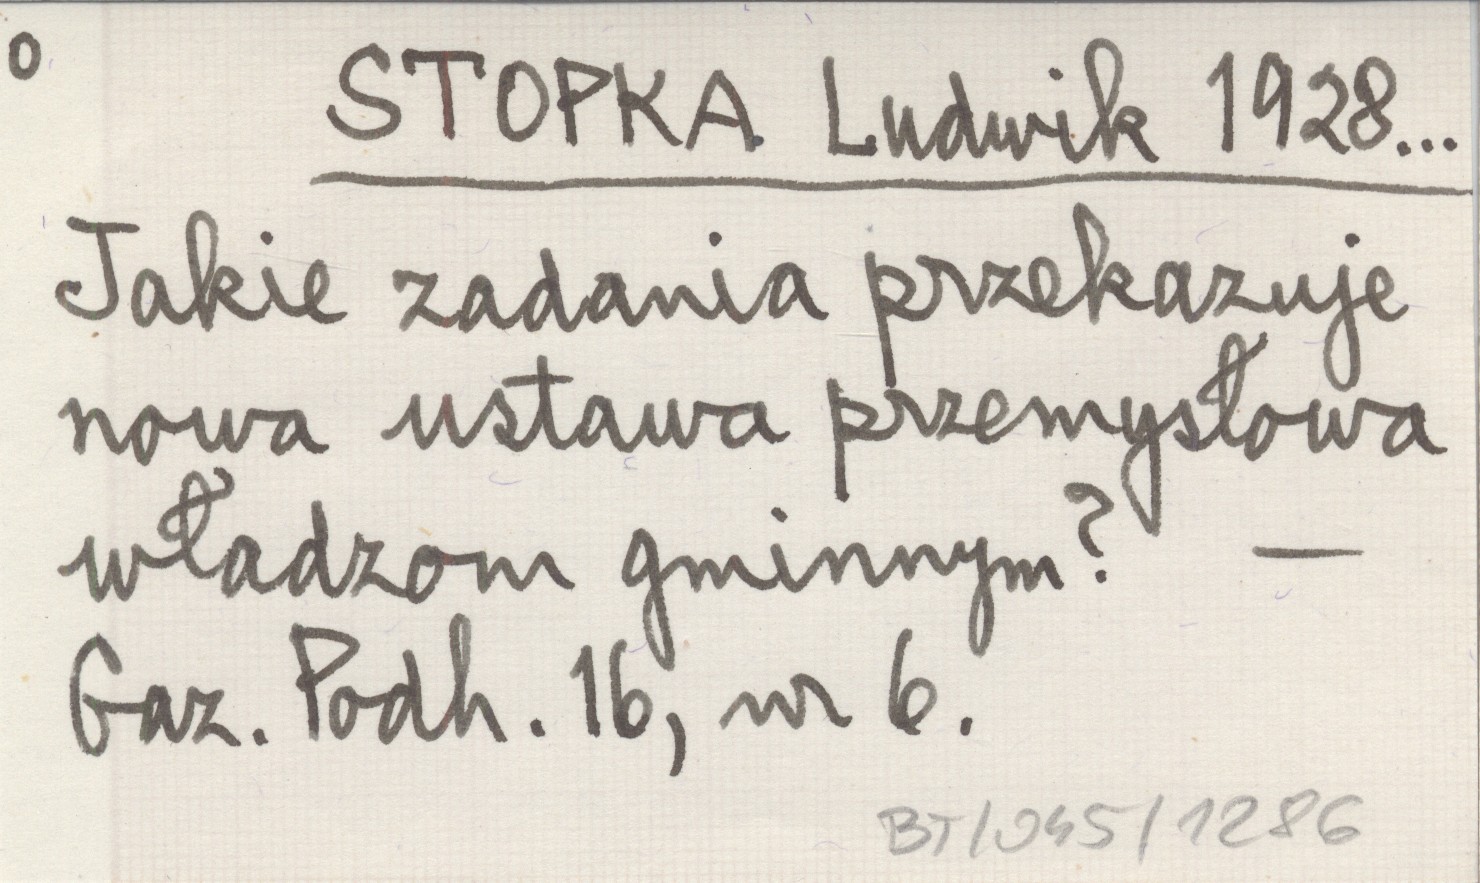 o
STOPKA Ludwik 1928...
Jakie zadania przekazuje
nowa ustawa przemysłowa
władzom gminnym? —
Gaz. Podh. 16, nr 6.
BT/045/1286